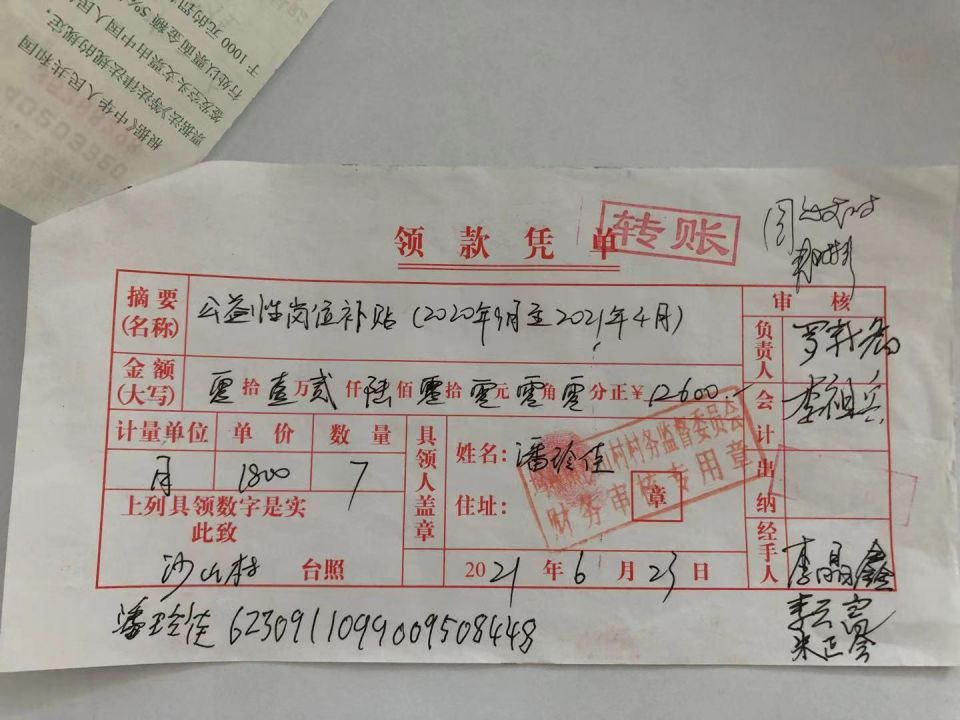 根据《中华人民共和国
票据法》等法律法规的规定，
签发空头支票由中国人民
行处以票面金额5%
于1000元的
领款凭单
转账
审核
摘要(名称)
公益性岗位补贴(2020年9月至2021年4月)
负责人
金额(大写)
零拾壹万贰仟陆佰零拾零元零角零分正¥12600.-
会计
李祖兵
计量单位 单价 数量
月 1800 7
具领人盖章
姓名:潘玲佳
住址:
章
村村务监督委员会
财务审核专用章
出纳
上列具领数字是实
此致
沙山村 台照
2021年6月23日
经手人
李晶鑫
潘玲佳 6230911099009508448